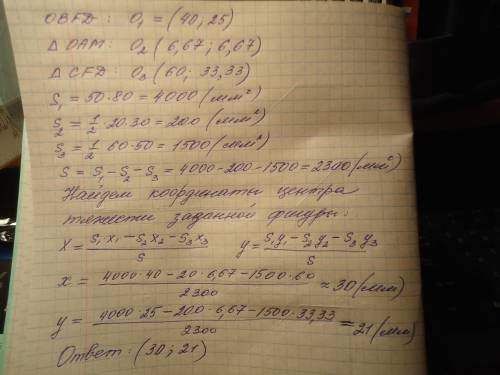 OBFD: O₁ = (40; 25)
Δ OAM: O₂ (6,67; 6,67)
Δ CFD: O₃ (60; 33,33)
S₁ = 50·80 = 4000 (мм²)
S₂ = 1/2 · 20·30 = 200 (мм²)
S₃ = 1/2 · 60·50 = 1500 (мм²)
S = S₁ - S₂ - S₃ = 4000 - 200 - 1500 = 2300 (мм²)
Найдем координаты центра
тяжести заданной фигуры:
X = (S₁·x₁ - S₂x₂ - S₃x₃) / S y = (S₁y₁ - S₂y₂ - S₃y₃) / S
x = (4000·40 - 20·6,67 - 1500·60) / 2300 ≈ 30 (мм)
y = (4000·25 - 200·6,67 - 1500·33,33) / 2300 = 21 (мм)
Ответ: (30; 21)